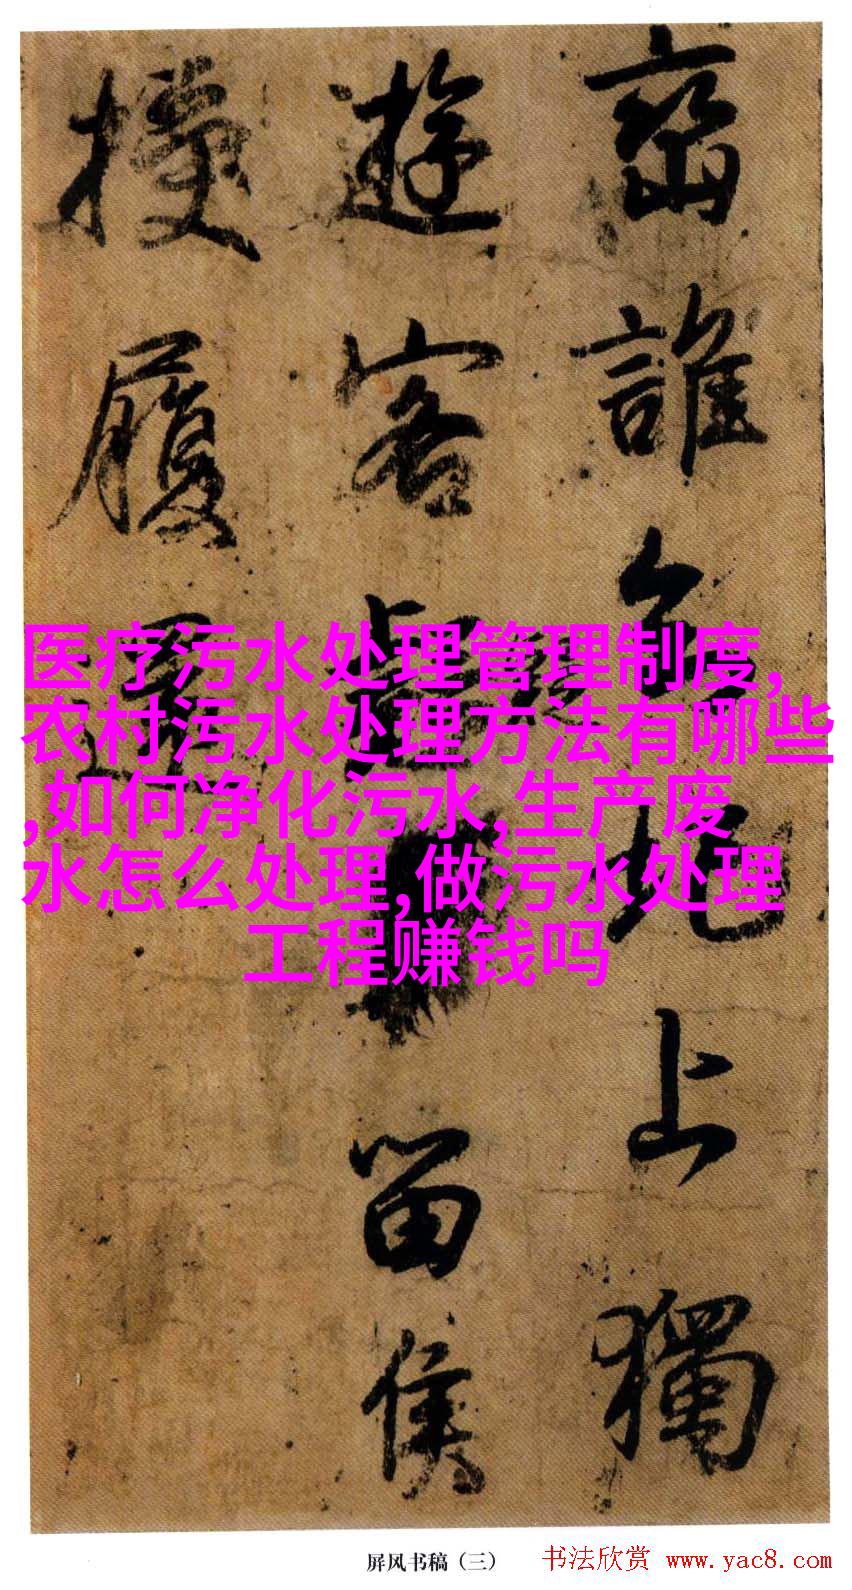 誰 上 獨
遊 客 留 侯
履
医疗污水处理管理制度,
农村污水处理方法有哪些
,如何净化污水,生产废
水怎么处理,做污水处理
工程赚钱吗
屏风书稿（三）
书法欣赏 www.yac8.com